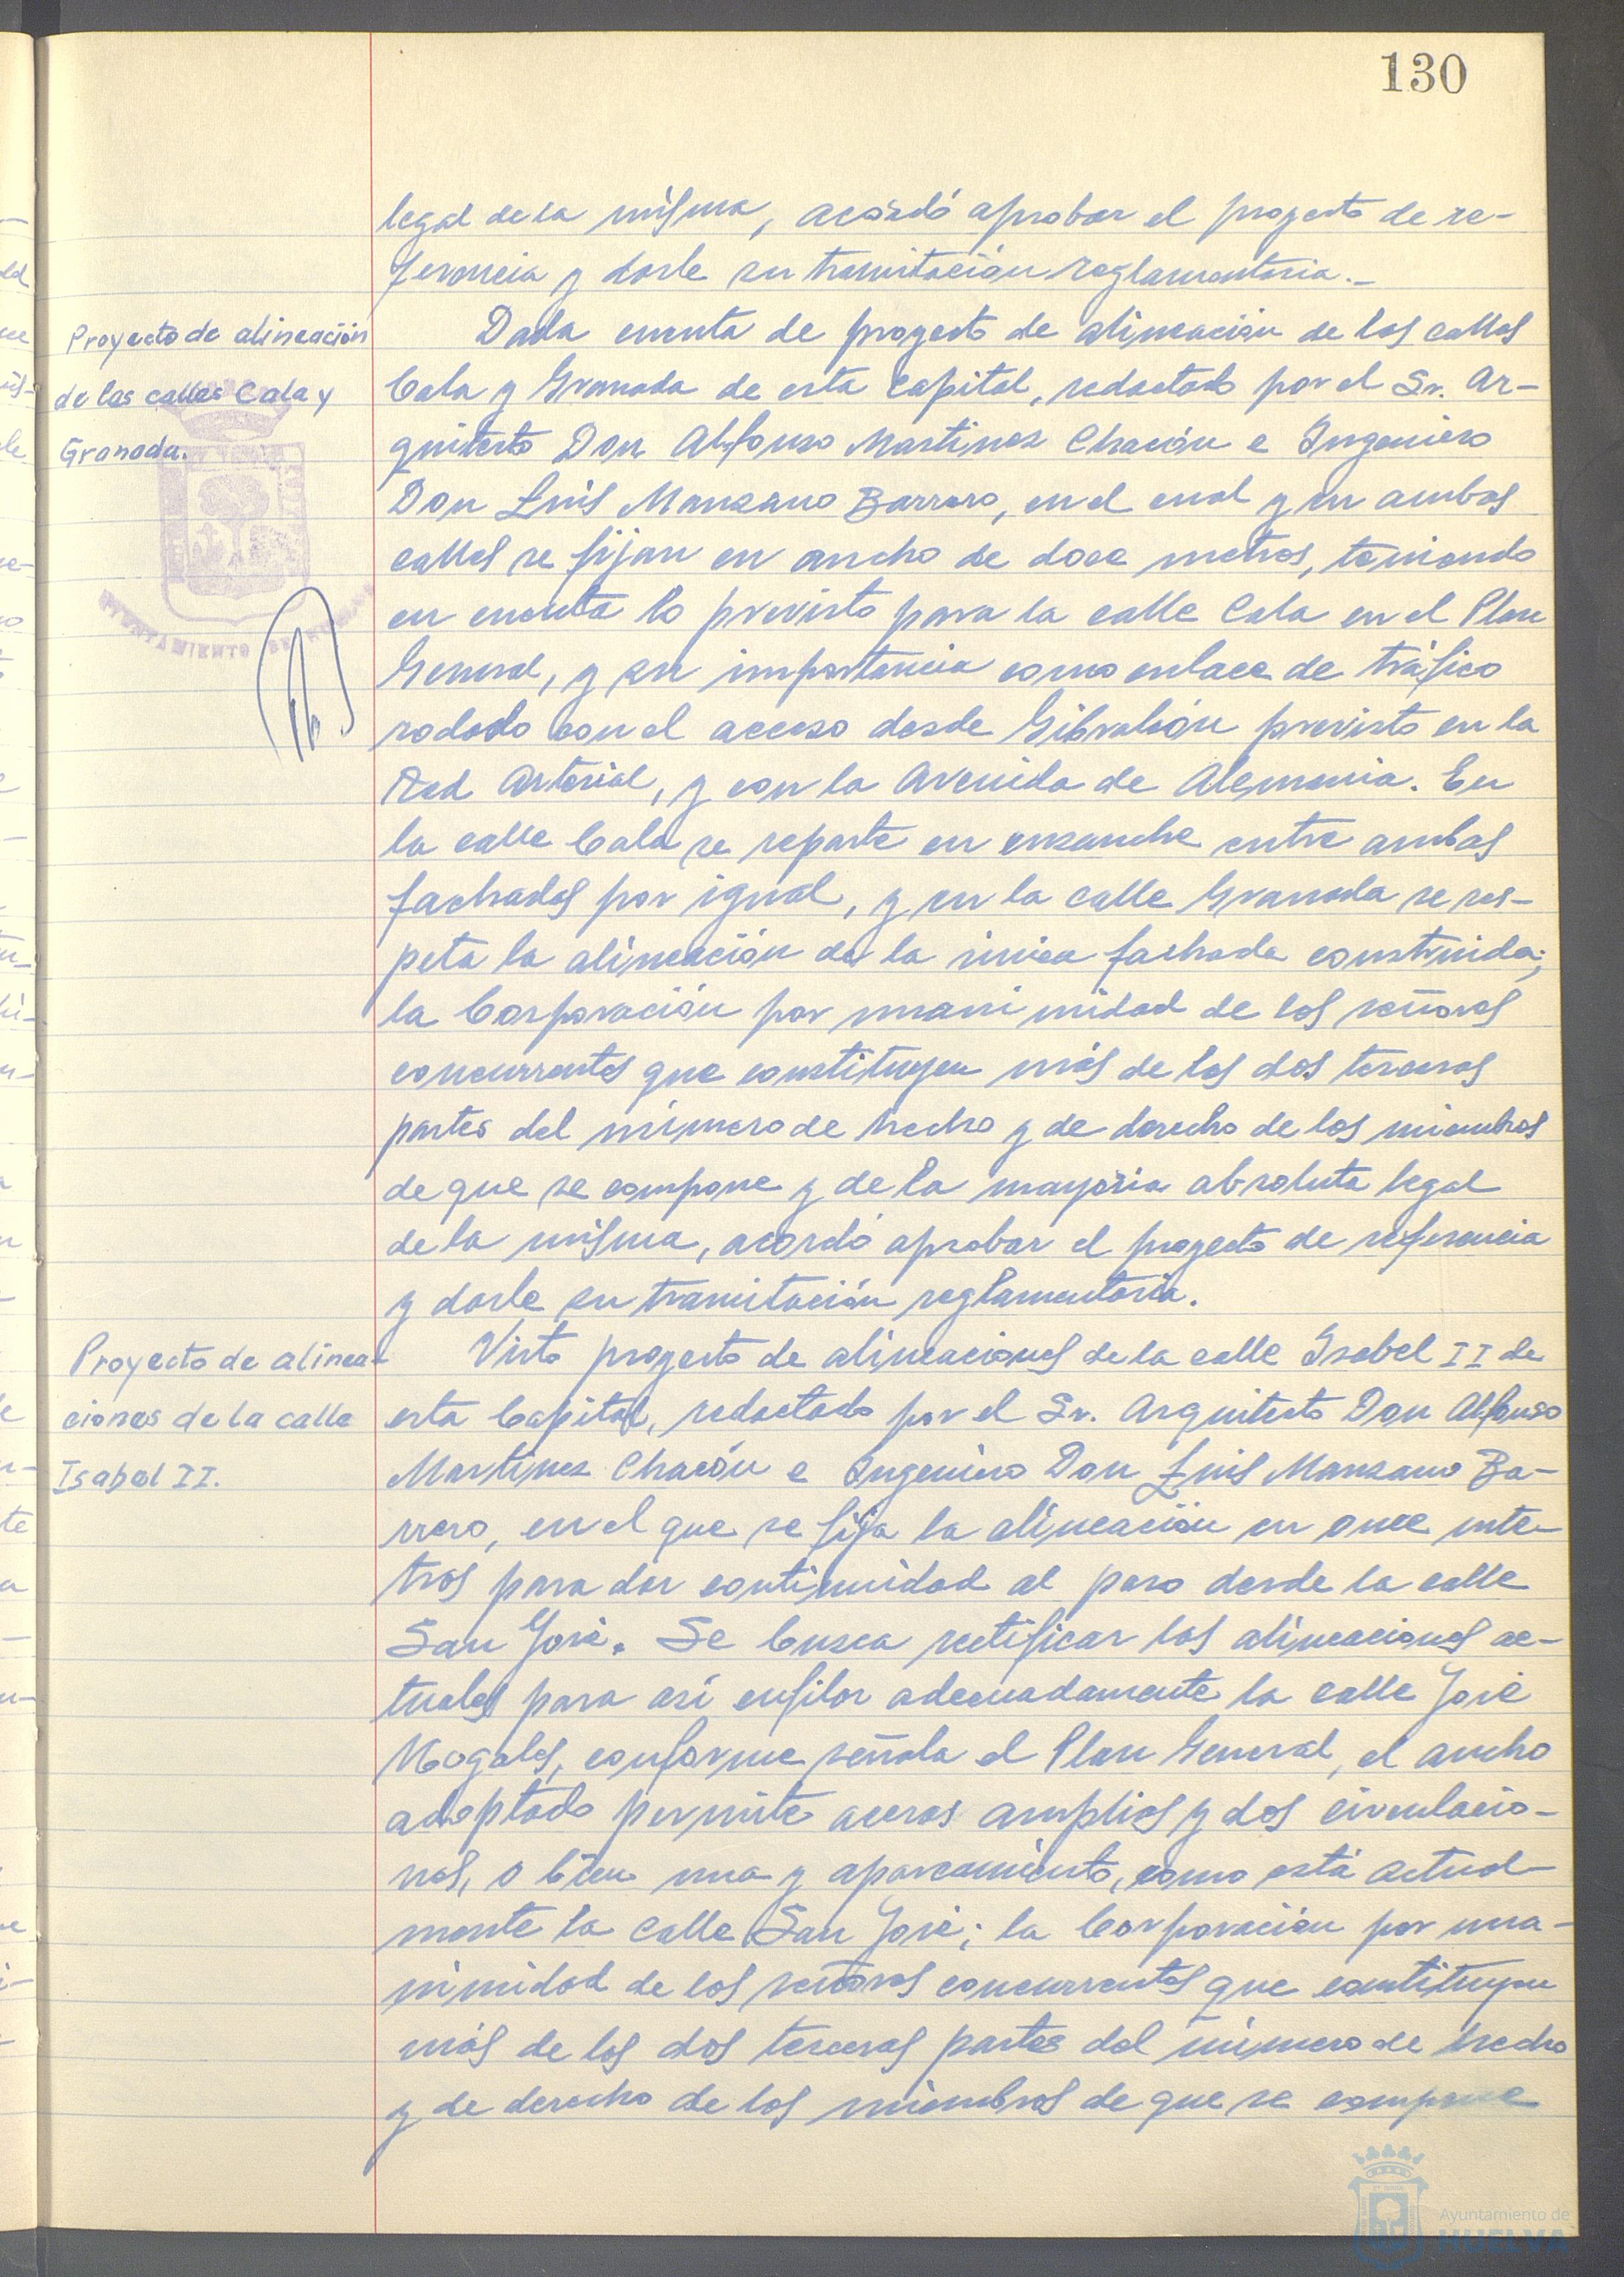 130
legal de la misma, acordó aprobar el proyecto de re-
ferencia y darle su tramitación reglamentaria.-
Proyecto de alineación
de las calles Cala y
Granada.
Dada cuenta de proyecto de alineación de las calles
Cala y Granada de esta capital, redactado por el Sr. Ar-
quitecto Don Alfonso Martinez Chacón e Ingeniero
Don Luis Manzano Barrero, en el cual y en ambas
calles se fijan en ancho de doce metros, teniendo
en cuenta lo previsto para la calle Cala en el Plan
General, y su importancia como enlace de tráfico
rodado con el acceso desde Gibraleón previsto en la
Red Arterial, y con la Avenida de Alemania. En
la calle Cala se reparte en ensanche entre ambas
fachadas por igual, y en la calle Granada se res-
peta la alineación de la única fachada construida;
la Corporación por unanimidad de los señores
concurrentes que constituyen más de las dos terceras
partes del número de hecho y de derecho de los miembros
de que se compone y de la mayoria absoluta legal
de la misma, acordó aprobar el proyecto de referencia
y darle su tramitación reglamentaria.
Proyecto de alinea-
ciones de la calle
Isabel II.
Visto proyecto de alineaciones de la calle Isabel II de
esta Capital, redactado por el Sr. Arquitecto Don Alfonso
Martinez Chacón e Ingeniero Don Luis Manzano Ba-
rrero, en el que se fija la alineación en once me-
tros para dar continuidad al paso desde la calle
San José. Se busca rectificar las alineaciones ac-
tuales para así enfilar adecuadamente la calle José
Nogales, conforme señala el Plan General, el ancho
adoptado permite aceras amplias y dos circulacio-
nes, o bien una y aparcamiento, como está actual-
mente la calle San José; la Corporación por una-
nimidad de los señores concurrentes que constituyen
más de las dos terceras partes del número de hecho
y de derecho de los miembros de que se compone
AYUNTAMIENTO DE HUELVA
Ayuntamiento de
HUELVA